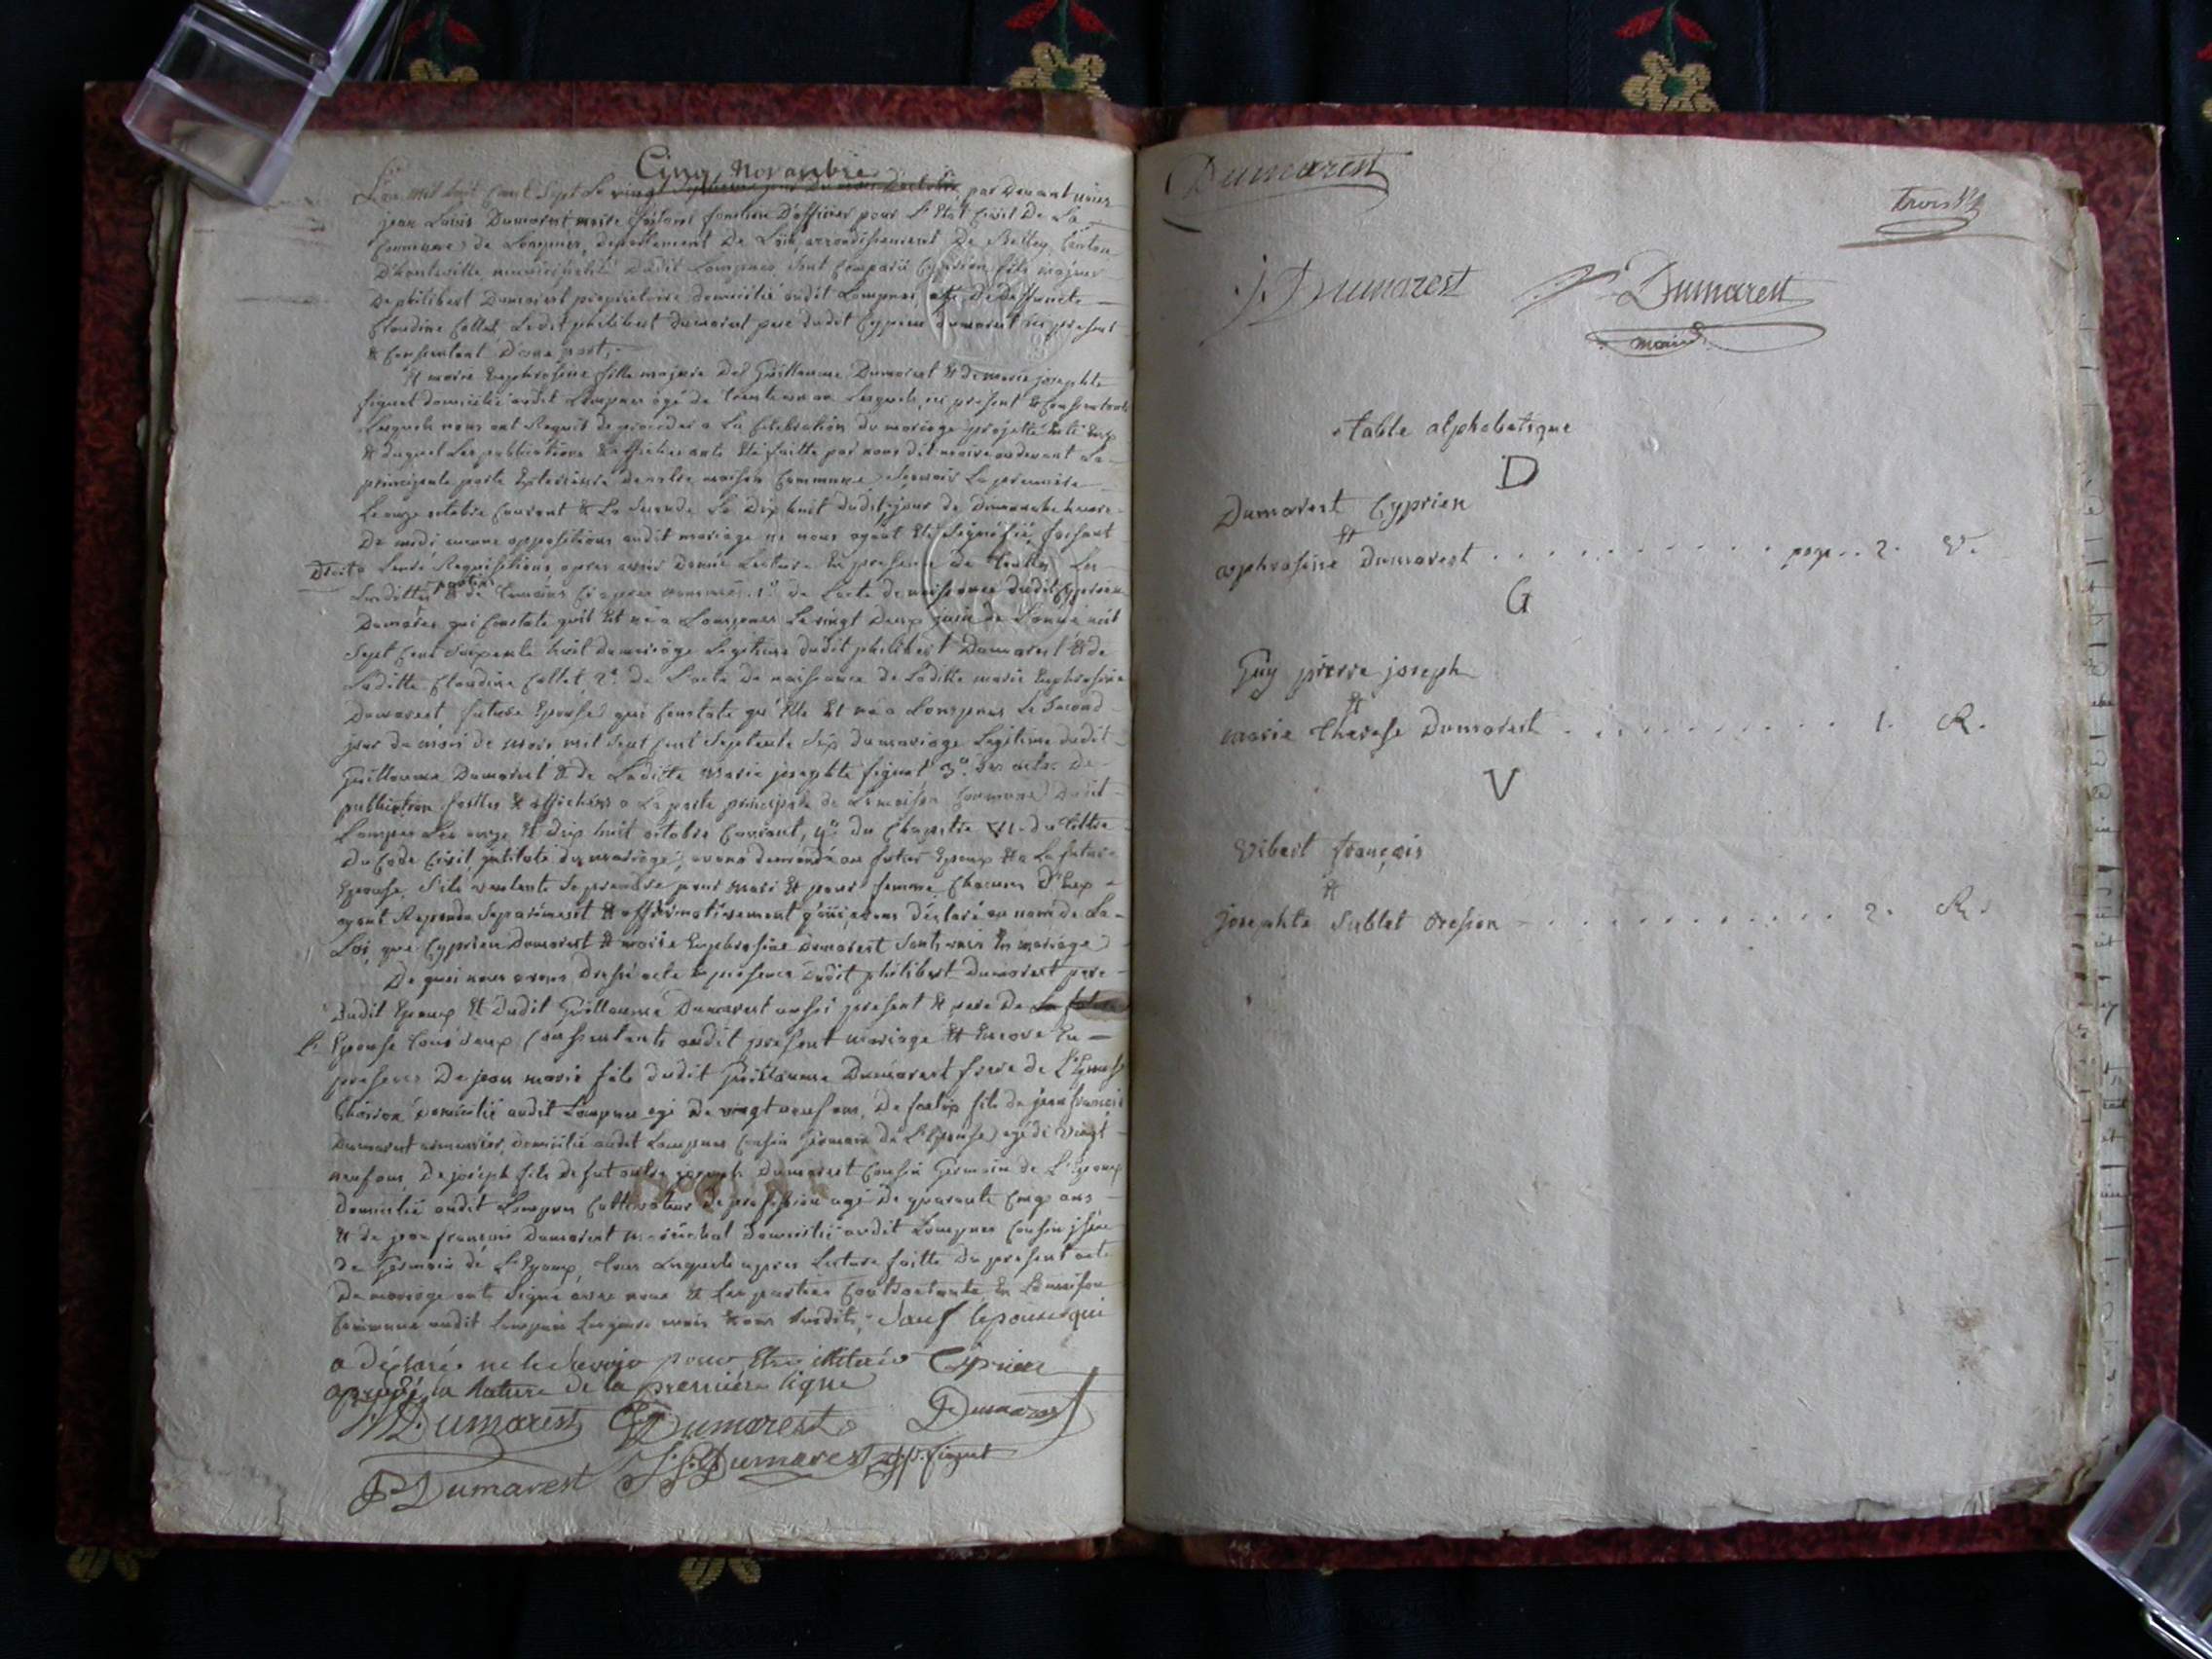 Cinq Novambre
L'an mil huit Cent Sept Le vingt Septieme jour du mois D'octobre par Devant nous
jean Louis Dumarest maire faisant fonction D'officier pour L'Etat Civil De La
Commune de Lompnes, departement De L'ain, arrondissement De Belley, Canton
D'hauteville, municipalité Dudit Lompnes, sont Comparû Cyprien fils majeur
De philibert Dumarest proprietaire domicilié audit Lompnes, et De deffuncte
Claudine Collet, Ledit philibert dumarest pere dudit Cyprien dumarest ici present
& Consentent D'une part,
Et marie Euphrosine fille majeure De Guillaume Dumarest & de marie josephte
figuet domicilié audit Lompnes agé de trente un an Lesquels ici present & Consentent
Lesquels nous ont Requit de proceder a La Celebration du mariage projetté
& duquel Les publications & affiches ont Eté faitte par nous dit maire au devant La
principale porte Exterieure de notre maison Commune Sçavoir La premiere
Le onze octobre Courant & La Seconde Le Dix huit dudit, jour de Dimanche heure
De midi aucune oppositions audit mariage ne nous ayant Eté Signifié, faisant
Droit a Leurs Requisitions apres avoir Donné Lecture En presence de toutes Les
Lesdittes parties & de temoins Ci apres nommés 1° de Lacte de naissance dudit Cyprien
Dumarest qui Constate quil Est né a Lompnes Le vingt Deux juin de Lanné mil
Sept Cent Soixante huit du mariage Legitime dudit philibert Dumarest & de
Laditte Claudine Collet, 2° de L'acte De naissance de Laditte marie Euphrosine
Dumarest future Epouse qui Constate qu'Elle Est né a Lompnes Le Second
jour du mois de mars mil Sept Cent Septente Six du mariage Legitime dudit
Guillaume Dumarest & de Laditte Marie josephte figuet 3° des actes De
publication faittes & affichées a La porte principale de La maison Commune Dudit
Lompnes Les onze & dix huit octobre Courant, 4° du Chapitre VI du tittre
Du Code Civil intitulé du mariage, avons demandé au futur Epoux & a La future
Epouse S'ils veulents Se prendre pour Mari & pour femme Chacuns D'Eux
ayant Repondu Separement & affirmativement avons déclaré au nom de La
Loi que Cyprien Dumarest & marie Euphrosine Dumarest Sont unis En mariage
De quoi nous avons Dressé acte En presence dudit philibert Dumarest pere
Dudit Epoux & Dudit Guillaume Dumarest aussi present & pere De La future
L' Epouse tous deux Consentents audit present mariage & Encore En
presence De jean marie fils dudit Guillaume Dumarest frere de L'Epouse
domicilié audit Lompnes agé De vingt neuf ans, De fils de jean francois
Dumarest domicilié audit Lompnes Cousin Germain de L'Epouse agé de vingt
neuf ans, De joseph fils de fut joseph Dumarest Cousin Germain de L'Epoux
Domicilié audit Lompnes Cultivateur de profession agé De quarante Cinq ans
& de jean francois Dumarest maréchal domicilié audit Lompnes Cousin
De Germain de L'Epoux, tous Lesquels apres Lecture faitte Du present acte
De mariage ont Signé avec nous & Les parties Contractante En La maison
Commune audit Lompnes Les jour mois & ans Susdits, Sauf lepouse qui
a déclaré ne pour Etre Ciprien
la Rature de la premiere ligne
Dumarest Dumarest Dumarest
P Dumarest J. f. Dumarest figuet
Dumarest
trois
j. Dumarest Dumarest
maire
table alphabetique
D
Dumarest Cyprien
&
Dumarest page 2. V.
G
Guy pierre joseph
&
marie Therese Dumarest 1. R.
V
Vibert françois
&
josephte Sublet 2. R.